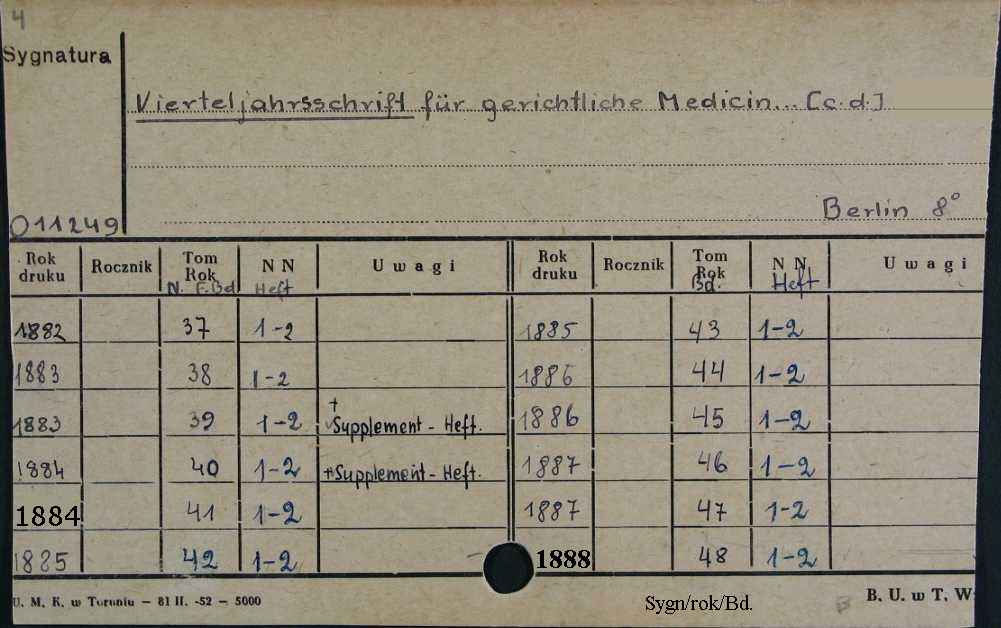 4
Sygnatura
Vierteljahrsschrift für gerichtliche Medicin... [c.d.]
Berlin 8°
011249
Rok druku Rocznik Tom Rok N. F. Bd NN Heft Uwagi Rok druku Rocznik Tom Rok Bd. NN Heft Uwagi
1882 37 1-2 1885 43 1-2
1883 38 1-2 1886 44 1-2
1883 39 1-2 + Supplement - Heft. 1886 45 1-2
1884 40 1-2 + Supplement - Heft. 1887 46 1-2
1884 41 1-2 1887 47 1-2
1885 42 1-2 1888 48 1-2
U. M. K. w Toruniu – 81 II. -52 – 5000
Sygn/rok/Bd.
B. U. w T. W